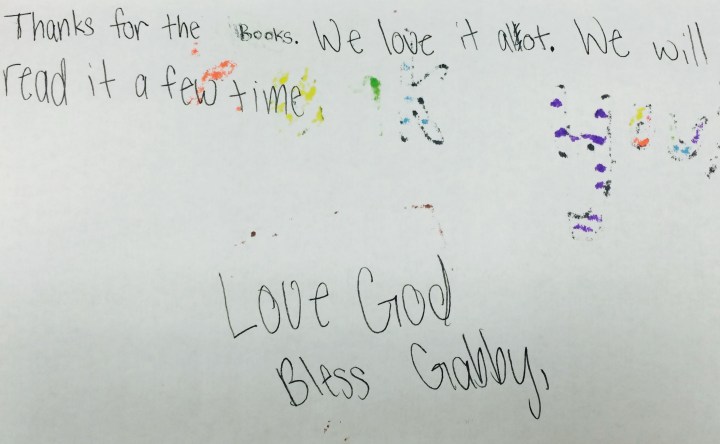 Thanks for the Books. We love it alot. We will
read it a few time
Love God
Bless Gabby,